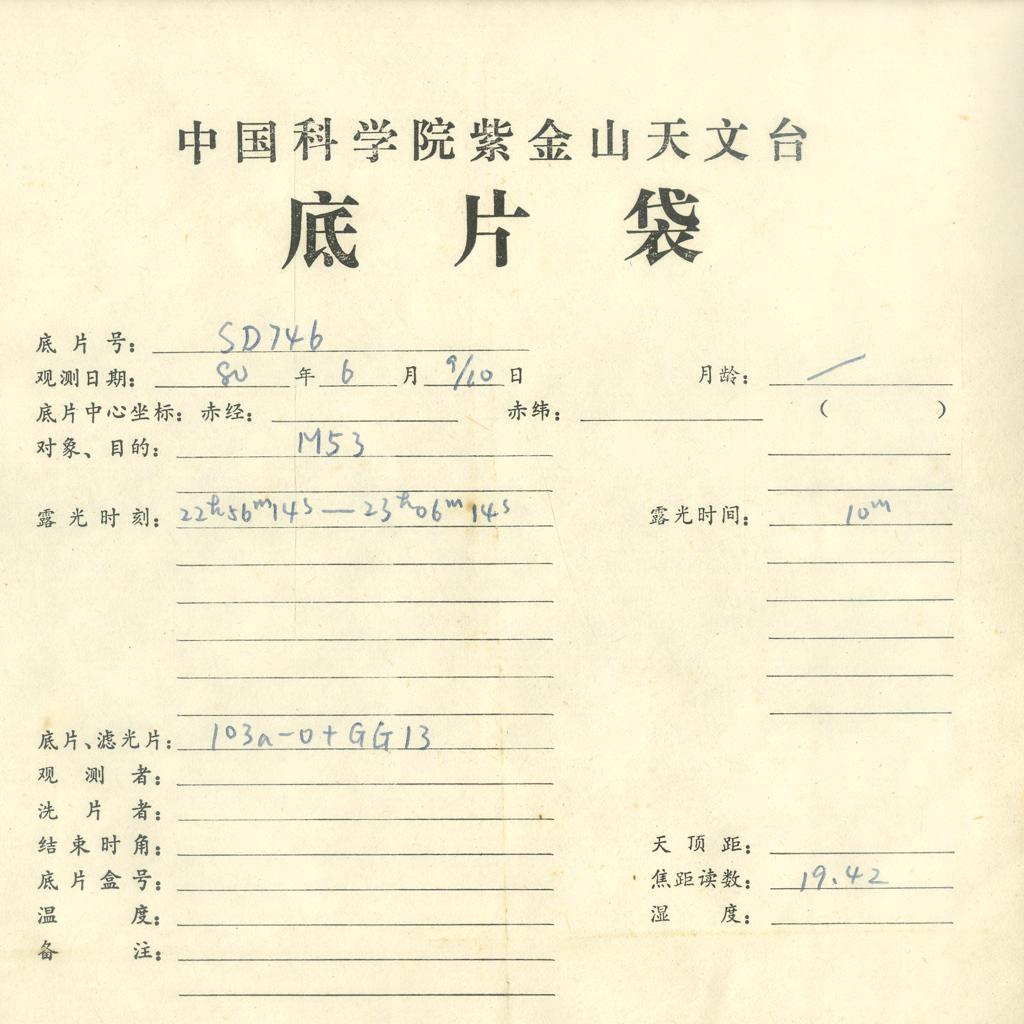 中国科学院紫金山天文台
底片袋
底片号: SD746
观测日期: 80 年 6 月 9/10 日 月龄: /
底片中心坐标: 赤经: 赤纬: ( )
对象、目的: M53
露光时刻: 22h56m14s — 23h06m14s 露光时间: 10m
底片、滤光片: 103a-O + GG13
观测者:
洗片者:
结束时角: 天顶距:
底片盒号: 焦距读数: 19.42
温度: 湿度:
备注: